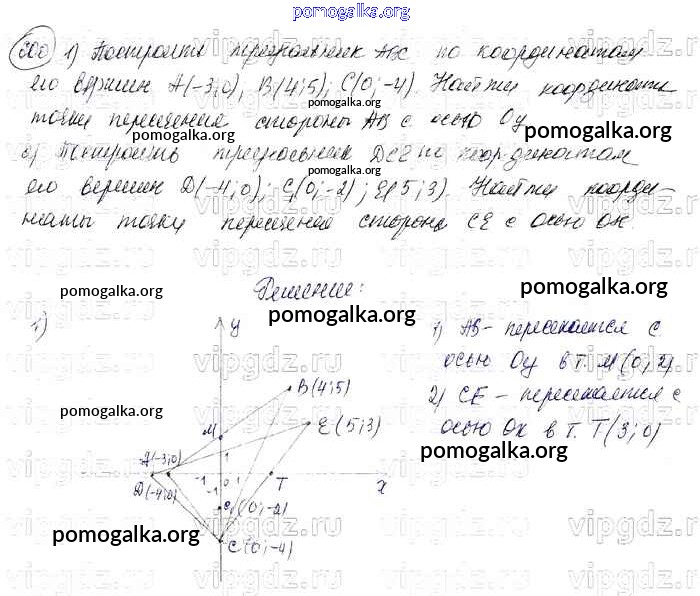 pomogalka.org
200 1) Построить треугольник ABC по координатам
его вершин A(-3;0); B(4;5); C(0;-4). Найти координаты
точки пересечения стороны AB с осью Oy
pomogalka.org
pomogalka.org
pomogalka.org
2) Построить треугольник DCE по координатам
его вершин D(-4;0); C(0;-2); E(5;3). Найти коорди-
pomogalka.org
наты точки пересечения стороны CE с осью Ox.
Решение:
pomogalka.org
pomogalka.org
pomogalka.org
1)
y
1) AB - пересекается с
осью Oy в т. M(0;2)
B(4;5)
2) CE - пересекается с
pomogalka.org
M
E(5;3)
осью Ox в т. T(3;0)
pomogalka.org
A(-3;0)
1
D(-4;0)
-1
0
1
T
x
-1
C1(0;-2)
pomogalka.org
pomogalka.org
C(0;-4)
vipgdz.ru